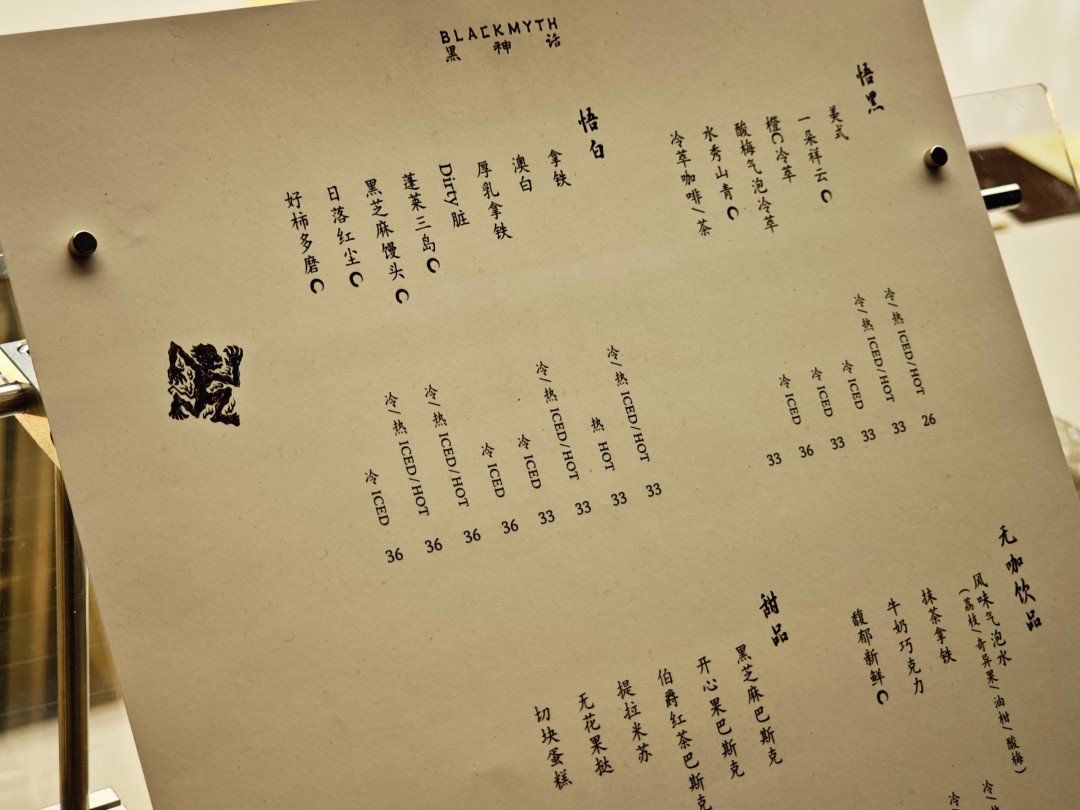 BLACKMYTH
黑神话
悟黑
美式 冷/热 ICED/HOT 26
一朵祥云 冷/热 ICED/HOT 33
橙C冷萃 冷 ICED 33
酸梅气泡冷萃 冷 ICED 33
水秀山青 冷 ICED 36
冷萃咖啡/茶 33
悟白
拿铁 冷/热 ICED/HOT 33
澳白 热 HOT 33
厚乳拿铁 冷/热 ICED/HOT 33
Dirty 脏 冷 ICED 33
蓬莱三岛 冷 ICED 36
黑芝麻馒头 冷/热 ICED/HOT 36
日落红尘 冷/热 ICED/HOT 36
好柿多磨 冷 ICED 36
无咖饮品
风味气泡水
(荔枝/奇异果/油柑/酸梅)
抹茶拿铁 冷/
牛奶巧克力 冷
馥郁新鲜
甜品
黑芝麻巴斯克
开心果巴斯克
伯爵红茶巴斯克
提拉米苏
无花果挞
切块蛋糕